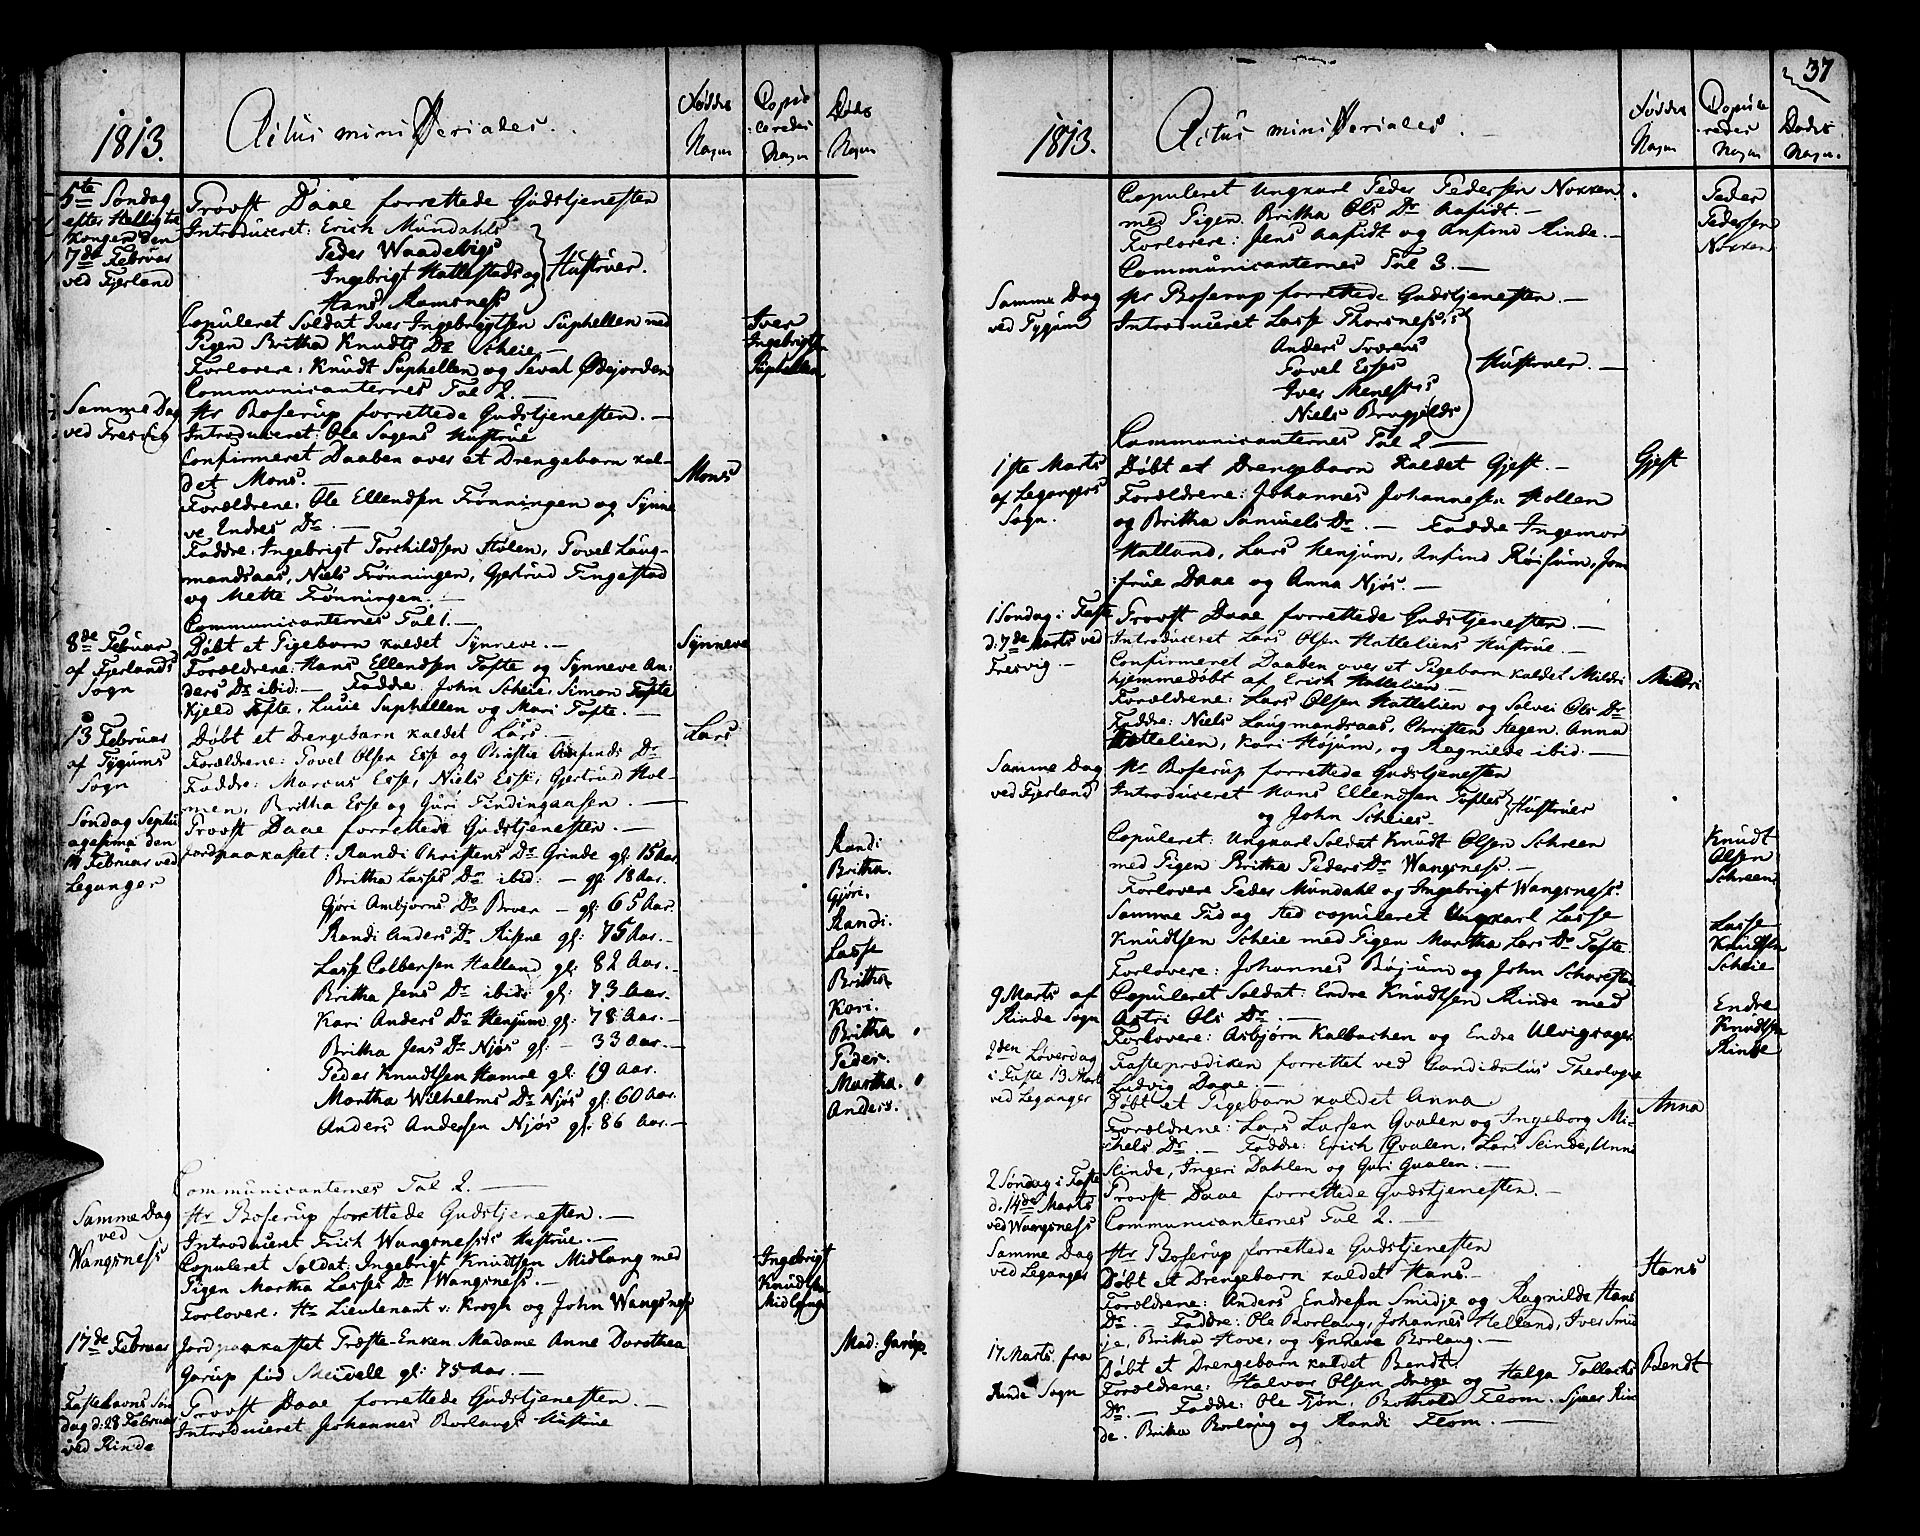 1813.
Actus ministeriales.
Fødde
Nagn
Copu
leredes
Nagn
Døds
Nagn
5te Søndag
efter Hellig tre
Kongen den
7de Februar
ved Fjerland
Provst Daae forrettede Gudstjenesten
Introduceret: Erich Mundahls
Peder Waadevigs
Ingebrigt Hattestads og
Hans Ramsness
Hustruer.
Copuleret Soldat Iver Ingebrigtsen Suphellen med
Pigen Britha Knudts Dr Scheie. —
Forlovere: Knudt Suphellen og Sevat Ødejorden
Communicanternes Tal 2. —
Iver
Ingebrigtsn
Suphellen
Samme Dag
ved Fresvig
Hr Boserup forrettede Gudstjenesten. —
Introduceret: Ole Sagens Hustrue
Confirmeret Daaben over et Drengebarn kal-
det Mons. —
Forældrene: Ole Ellendsen Frønningen og Synne
ve Endres Dr. —
Faddre: Ingebrigt Torchildsen Stølen, Povel Laug-
mandsaas, Niels Frønningen, Gjertrud Tingestad
og Mette Frønningen. —
Communicanternes Tal 1. —
Mons
8de Februar
af Fjerlands
Sogn
Døbt et Pigebarn kaldet Synneve. —
Forældrene: Hans Ellendsen Tofte og Synneve An-
ders Dr ibid. — Faddre: John Scheie, Simon Tofte
Kjeld Tofte, Lucie Suphellen og Mari Tofte. —
Synneve
13 Februar
af Tygums
Sogn
Døbt et Drengebarn kaldet Lars. —
Forældrene: Povel Olsen Esse og Christie Anfinds Dr
Faddre: Marcus Esse, Niels Esse, Gjertrud Hol-
men, Britha Esse og Guri Findingaasen. —
Lars
Søndag Septu
agesima den
14 Februar ved
Leganger
Provst Daae forrettede Gudstjenesten. —
Jordpaakastet: Randi Christens Dr Grinde gl: 15 Aar.
Britha Lasses Dr ibid: — gl: 18 Aar.
Gjøri Ambjørns Dr Bruer — gl: 65 Aar.
Randi Anders Dr Risene gl: 75 Aar. —
Lasse Colbersen Halland gl: 82 Aar. —
Britha Jens Dr ibid: gl: 73 Aar. —
Kari Anders Dr Henjum gl: 78 Aar. —
Britha Jens Dr Njøs gl: — 33 Aar. —
Peder Knudtsen Hamre gl: 19 Aar.
Martha Wilhelms Dr Njøs gl: 60 Aar.
Anders Andersen Njøs gl: 86 Aar. —
Randi
Britha.
Gjøri.
Randi.
Lasse
Britha
Kari.
Britha
Peder
Martha.
Anders.
Communicanternes Tal 2. —
Samme Dag
ved
Wangsness
Hr Boserup forrettede Gudstjenesten. —
Introduceret Erich Wangsness's Hustrue. —
Copuleret Soldat: Ingebrigt Knudtsen Midlang med
Pigen Martha Lasses Dr Wangsness. —
Forlovere: Hr Lieutenant v: Krogh og John Wangsness
Ingebrigt
Knudtsn
Midlang
17de Februar
Jordpaakastet Præste-Enken Madame Anne Dorothea
Garup fød Meidell gl: 75 Aar. —
Mad: Garup.
Fastelavns Søn
dag d: 28 Februar
ved Rinde
Provst Daae forrettede Gudstjenesten. —
Introduceret Johannes Borlaugs Hustrue
37
1813.
Actus ministeriales.
Fødde
Nagn
Copule
redes
Nagn
Dødes
Nagn.
Copuleret Ungkarl Peder Pedersen Nokken
med Pigen Britha Ols Dr Aafidt. —
Forlovere: Jens Aafidt og Anfind Rinde. —
Communicanternes Tal 3. —
Peder
Pedersen
Nokken
Samme Dag
ved Tygum
Hr Boserup forrettede Gudstjenesten. —
Introduceret Lasse Thorsness's
Anders Sværens
Povel Esses
Iver Meness's
Niels Brugjelds
Hustruer. —
Communicanternes Tal 2. —
1ste Marts
af Legangers
Sogn.
Døbt et Drengebarn kaldet Gjest. —
Forældrene: Johannes Johannessen Hollen
og Britha Samuels Dr. — Faddre Ingemor
Hatland, Lars Henjum, Anfind Røisum, Jom
frue Daae og Anna Njøs. —
Gjest
1 Søndag i Faste
d: 7de Marts ved
Fresvig —
Provst Daae forrettede Gudstjenesten. —
Introduceret Lars Olsen Hatteliens Hustrue. —
Confirmeret Daaben over et Pigebarn kaldet Mildri
hjemmedøbt af Erich Hattelien —
Forældrene: Lars Olsen Hattelien og Solvei Ols Dr
Faddre: Niels Laugmandsaas, Christen Hegen, Anna
Hattelien, Kari Højum, og Ragnilde ibid. —
Mildri
Samme Dag
ved Fjerland
Hr Boserup forrettede Gudstjenesten
Introduceret Hans Ellendsen Toftes
og John Scheies
Hustruer
Copuleret: Ungkarl Soldat Knudt Olsen Schreen
med Pigen Britha Peders Dr Wangsness. —
Forlovere Peder Mundahl og Ingebrigt Wangsness.
Knudt
Olsen
Schreen
Samme Tid og Sted copuleret Ungkarl Lasse
Knudtsen Scheie med Pigen Martha Lars Dr Tofte
Forlovere: Johannes Bøjum og John Scharestad
Lasse
Knudtsn
Scheie
9 Marts af
Rinde Sogn
Copuleret Soldat: Endre Knudtsen Rinde med
Astri Ols Dr. —
Forlovere: Asbjørn Kalbachen og Endre Ulvigsager
Endre
Knudtsn
Rinde
2den Løverdag
i Faste 13 Mart
ved Leganger
Fasteprædiken forrettet ved Candidatus Theologiæ
Ludvig Daae. —
Døbt et Pigebarn kaldet Anna.
Forældrene: Lars Larsen Qvalen og Ingeborg Mi-
chels Dr. — Faddre: Erich Qvalen, Lars Skinde, Anna
Skinde, Ingeri Dahlen og Guri Qvalen. —
Anna
2 Søndag i Faste
d. 14de Marts
ved Wangsness
Provst Daae forrettede Gudstjenesten. —
Communicanternes Tal 2. —
Samme Dag
ved Leganger
Hr Boserup forrettede Gudstjenesten
Døbt et Drengebarn kaldet Hans. —
Forældrene: Anders Endresen Smidje og Ragnilde Hans
Dr. — Faddre: Ole Borlaug, Johannes Helland, Iver Smid
je, Britha Hove, og Synneve Borlaug. —
Hans
17 Marts fra
Rinde Sogn
Døbt et Drengebarn kaldet Bendt.
Forældrene: Halvor Olsen Dræge og Helga Tollachs
Dr. — Faddre: Ole Tjøn, Bothold Flom, Sjur Rin
de. Britha Borlaug og Randi Flom. —
Bendt